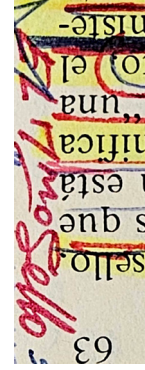 63
sello.
s que
n está
nifica
"una
to, el
niste-
7mo Sello